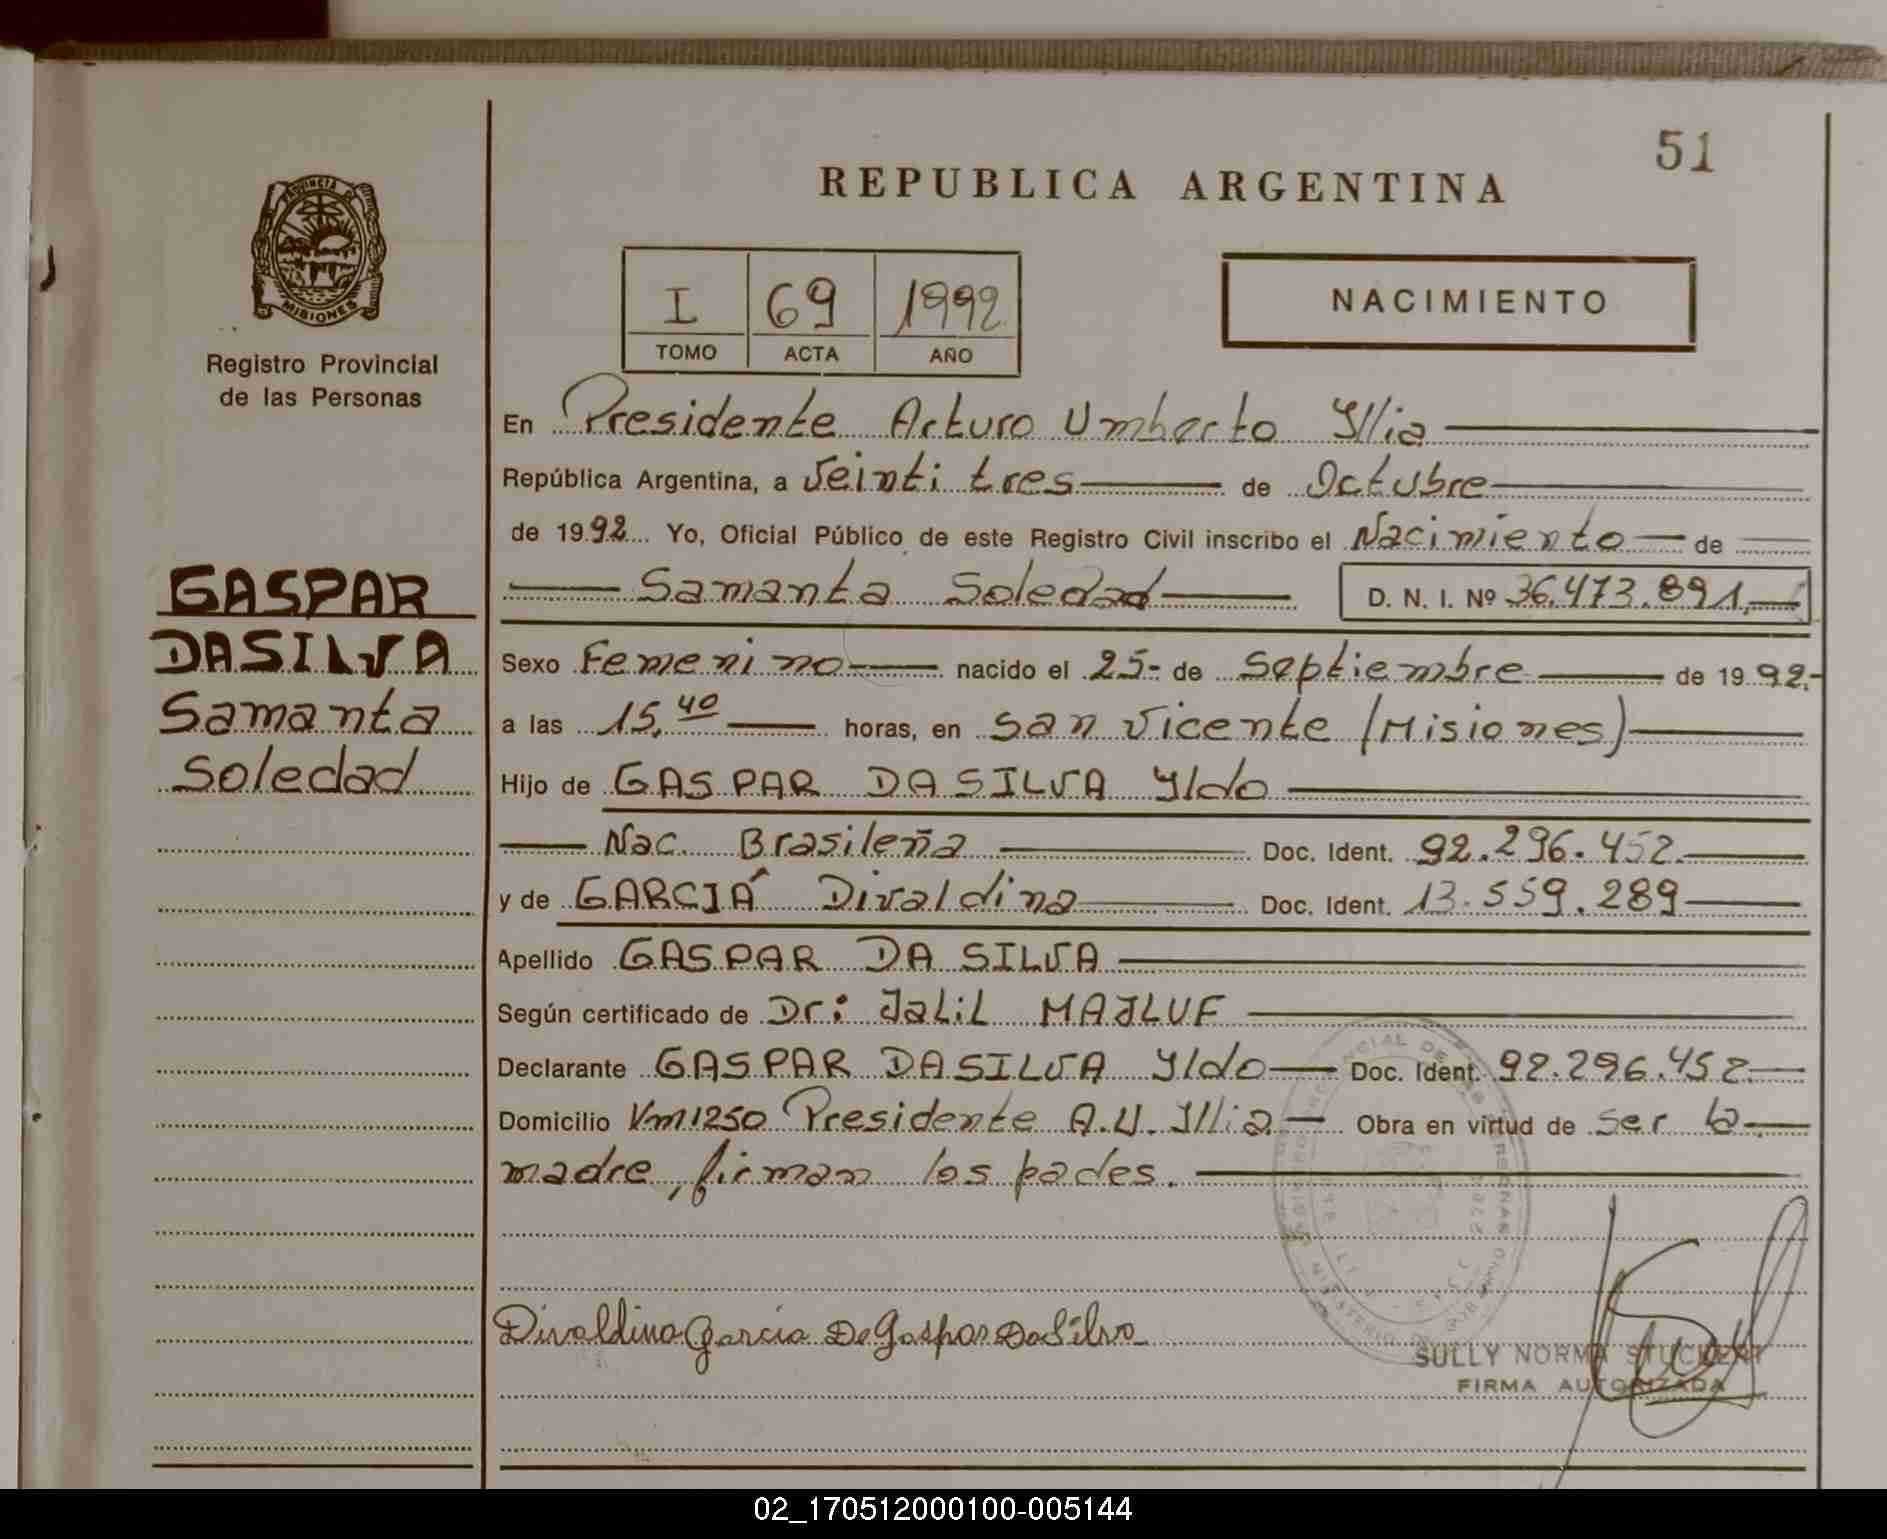 51
REPUBLICA ARGENTINA
PROVINCIA DE
MISIONES
Registro Provincial
de las Personas
I 69 1992
TOMO ACTA AÑO
NACIMIENTO
En Presidente Arturo Umberto Yllia
República Argentina, a Veinti tres de Octubre
de 1992 Yo, Oficial Público de este Registro Civil inscribo el Nacimiento de
Samanta Soledad D. N. I. Nº 36.473.891,
GASPAR
DASILVA
Samanta
Soledad
Sexo Femenino nacido el 25- de Septiembre de 1992.-
a las 15,40 horas, en San Vicente (Misiones)
Hijo de GASPAR DA SILVA Yldo
Nac. Brasileña Doc. Ident. 92.296.452.
y de GARCIÁ Divaldina Doc. Ident. 13.559.289
Apellido GASPAR DA SILVA
Según certificado de Dr: Jalil MAJLUF
Declarante GASPAR DASILVA Yldo Doc. Ident. 92.296.452.
Domicilio Km1250 Presidente A.U. Yllia Obra en virtud de ser la
madre, firman los pades.
Divaldina Garcia De Gaspar Da Silva
SULLY NORMA STUCKERT
FIRMA AUTORIZADA
02_170512000100-005144